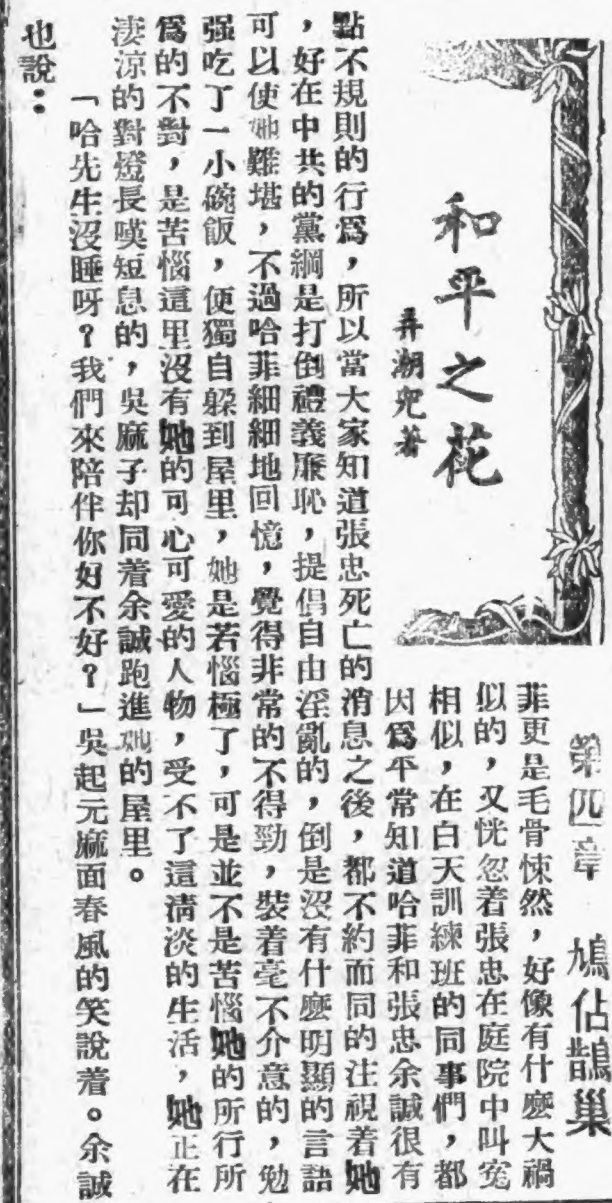 和平之花
弄潮兒著
第四章　鳩佔鵲巢
菲更是毛骨悚然，好像有什麼大禍
似的，又恍忽着張忠在庭院中叫寃
相似，在白天訓練班的同事們，都
因爲平常知道哈菲和張忠余誠很有
點不規則的行爲，所以當大家知道張忠死亡的消息之後，都不約而同的注視着她
，好在中共的黨綱是打倒禮義廉恥，提倡自由淫亂的，倒是沒有什麼明顯的言語
可以使她難堪，不過哈菲細細地回憶，覺得非常的不得勁，裝着毫不介意的，勉
强吃了一小碗飯，便獨自躲到屋里，她是若惱極了，可是並不是苦惱她的所行所
爲的不對，是苦惱這里沒有她的可心可愛的人物，受不了這淸淡的生活，她正在
淒涼的對燈長嘆短息的，吳麻子却同着余誠跑進她的屋里。
「哈先生沒睡呀？我們來陪伴你好不好？」吳起元麻面春風的笑說着。余誠
也說：